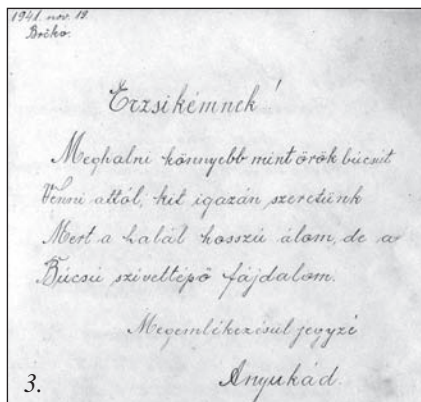 1941. nov. 19.
Brčko.
Erzsikémnek!
Meghalni könnyebb mint örök búcsút
Venni attól, kit igazán szeretünk
Mert a halál hosszú álom, de a
Búcsú szívettépő fájdalom.
Megemlékezésül jegyzé
Anyukád.
3.